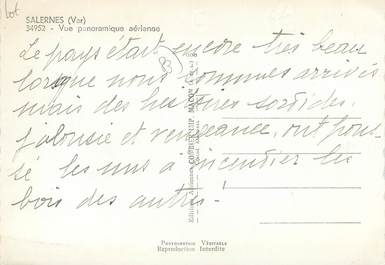 lot
SALERNES (Var)
34952 - Vue panoramique aérienne
Le pays était encore très beau
83
lorsque nous sommes arrivés
mais des histoires sordides,
jalousie et vengeance, ont pous
sé les uns à incendier les
bois des autres !
COMBIER IMP. MACON
PHOTOGRAPHIE VÉRITABLE
Reproduction Interdite